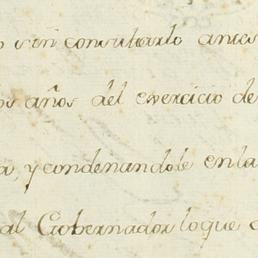 o sin consultarlo antes
os años del exercicio de
a, y condenandole en la
al Gobernador loque